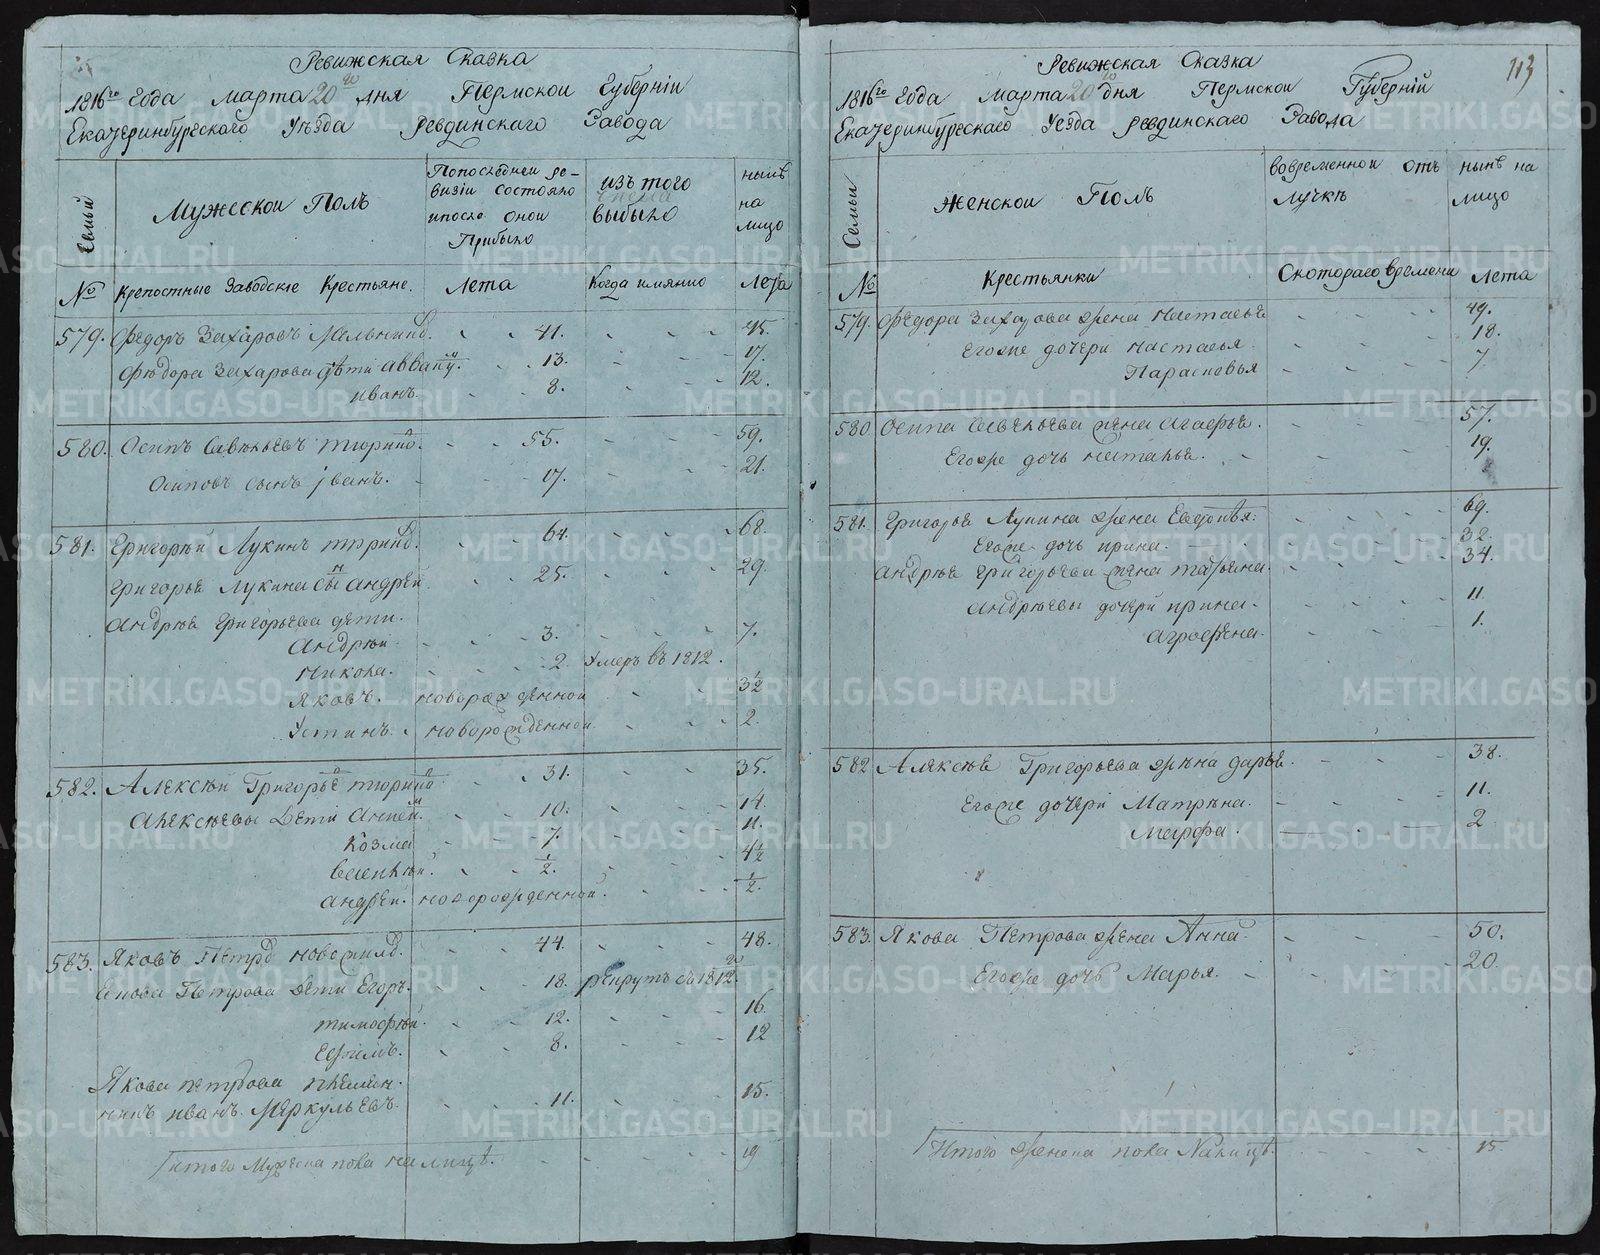 Ревижская Сказка
1816го Года Марта 20го дня Пермской Губерніи
Екатеринбургскаго Уѣзда Ревдинскаго Завода
Семьи
Мужеской Полъ
Попоследней ре-
визіи состояло
ипосле оной
Прибыло
изъ того
числа
выбыло
нынѣ
на
лицо
№
Крепостные Заводскіе Крестьяне.
Лета
Когда имянно
Лета
579. Федоръ Захаровъ 41. 45.
Фѣдора Захарова дѣти 13. 17.
иванъ. 8. 12.
580. Осипъ 55. 59.
Осиповъ сынъ іванъ. 17. 21.
581. Григорьй Лукинъ 64. 68.
Григорья Лукина сынъ андрѣй 25. 29.
андрѣя григорьева дети.
андрѣй. 3. 7.
никола. 2. Умеръ въ 1812.
яковъ. новорожденной 3½
Устинъ. новорожденной 2.
582. Алексѣй Григорьевъ 31. 35.
Алексѣевы Дети 10. 14.
Козма 7. 11.
½. 4½
андрей. новорожденной. ½.
583. Яковъ Петров 44. 48.
Якова Петрова дети Егоръ. 18. рекрутъ съ 1812го
тимофѣй. 12. 16.
Ефимъ. 8. 12
Якова петрова племян-
никъ иванъ Меркульевъ. 11. 15.
итого Мужеска пола на лицѣ. 19
113
Ревижская Сказка
1816го Года Марта 20го дня Пермской Губерній
Екатеринбургскаго Уезда ревдинскаго Завода
Семьи
Женской Полъ
вовременной отъ
лучкѣ
нынѣ на
лицо
№
Крестьянки
Скотораго времени
Лета
579. Федора Захарова жена настасья 49.
Егоже дочери настасья. 18.
Парасковья 7
580 Осипа жена агафья. 57.
Егоже дочь наталья. 19.
581. Григорья Лукина жена Евдотья: 69.
Егоже дочь ирина. 32.
андрѣя григорьева жена татьяна. 34.
андрѣевы дочери ирина. 11.
агрофена. 1.
582 Алексѣя Григорьева жѣна дарья. 38.
Егоже дочері Матрѣна. 11.
Марфа. 2
583. Якова Петрова жена Анна 50.
Егоже дочь Марья. 20.
Итого женска пола Налицѣ. 15
METRIKI.GASO-URAL.RU